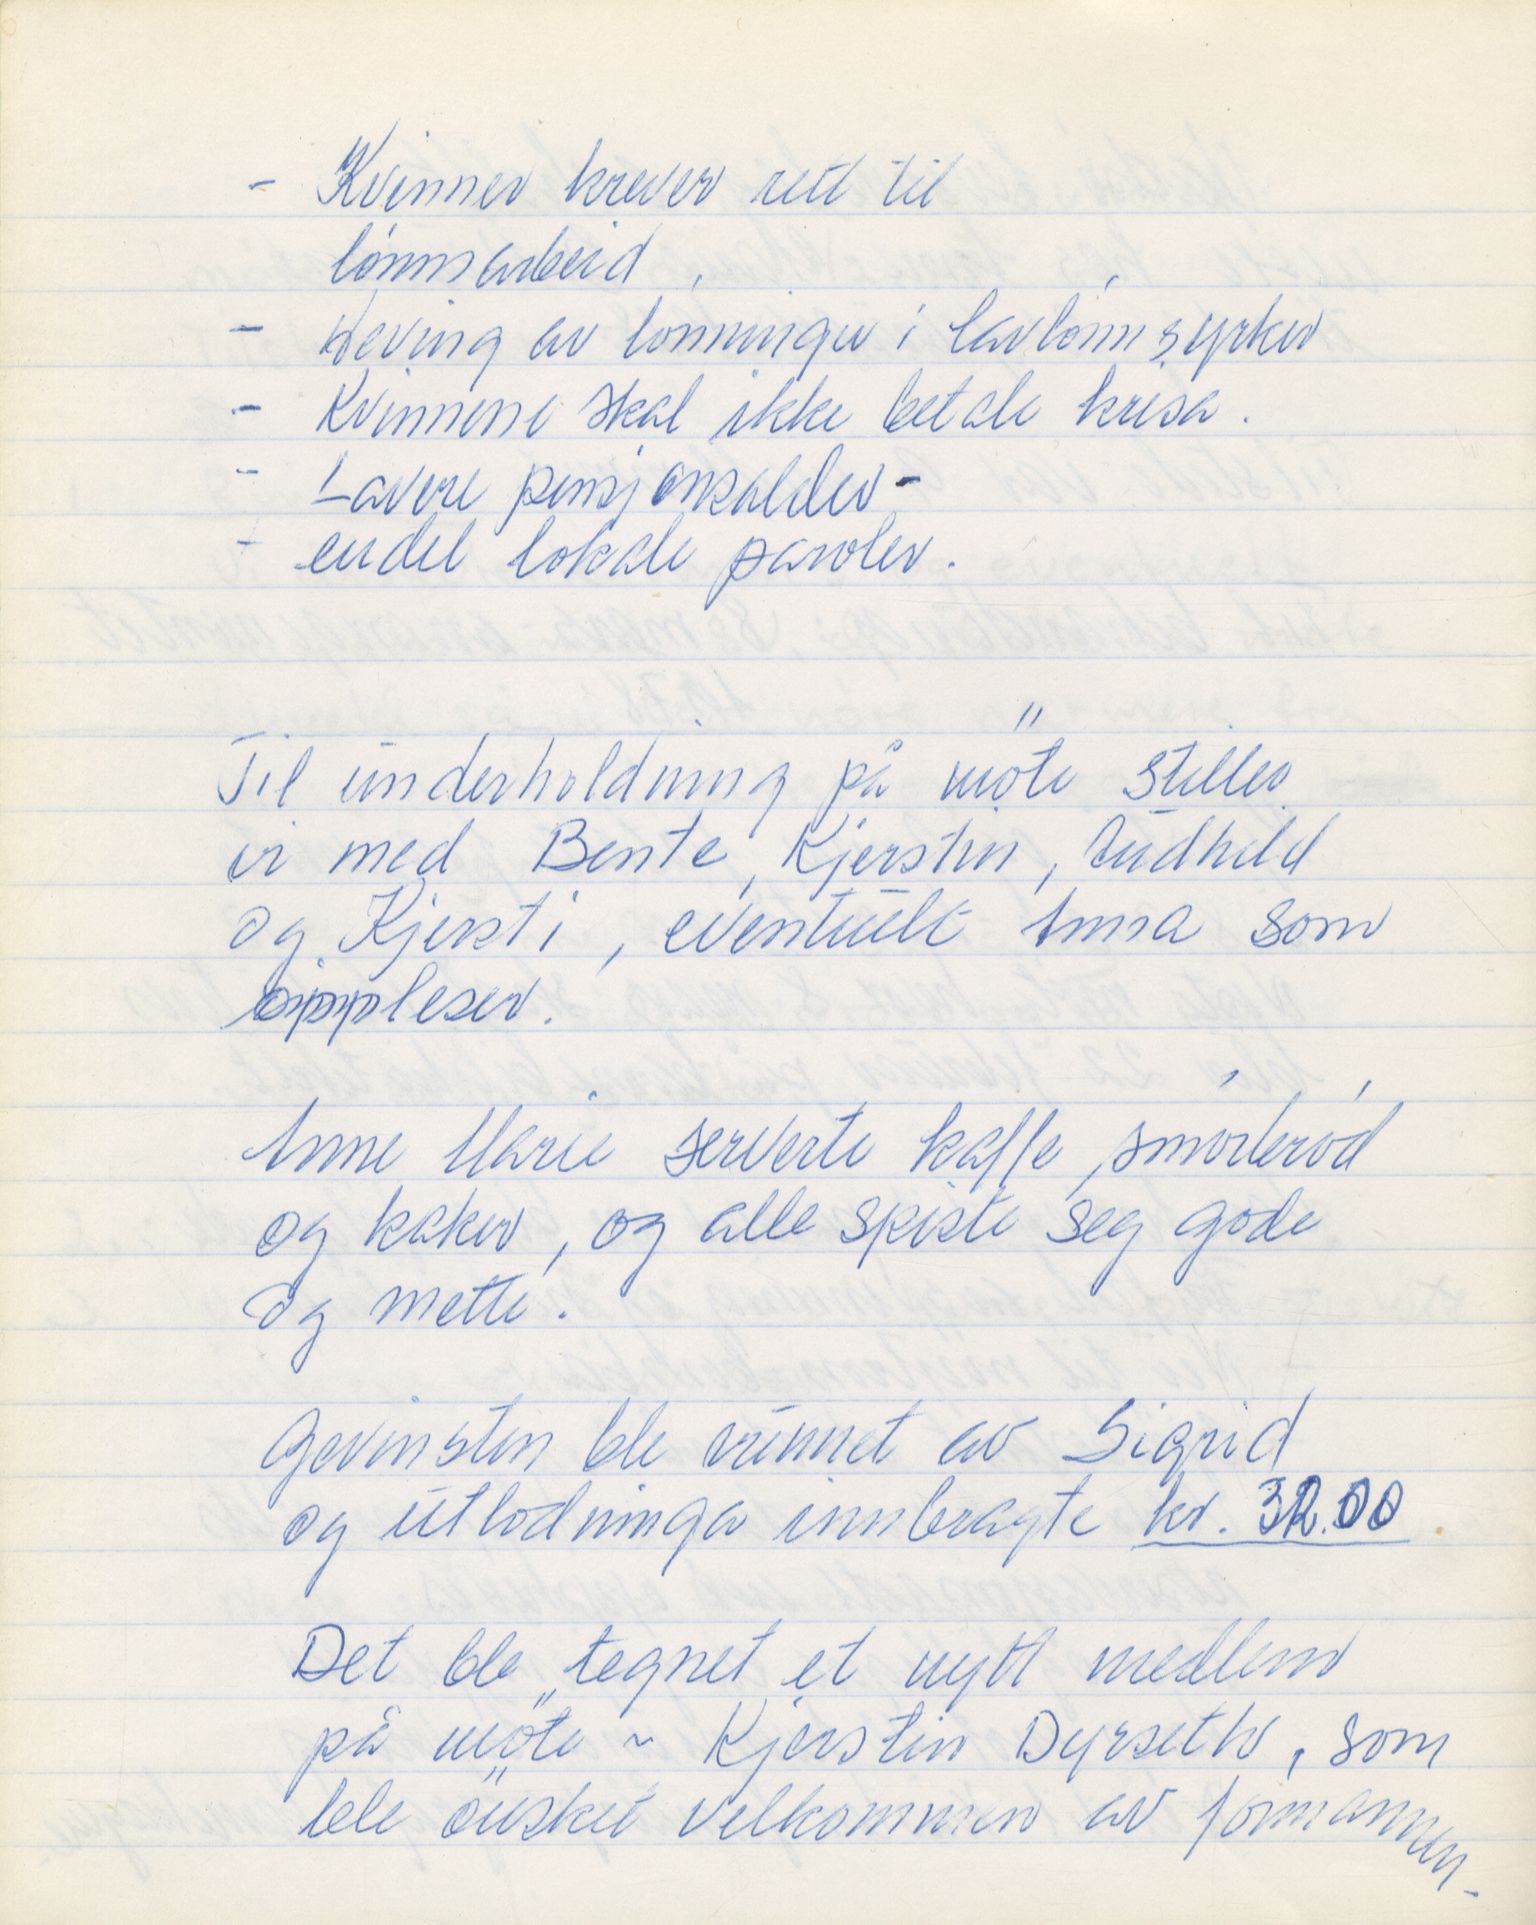 - Kvinner krever rett til
lønnsarbeid.
- Heving av lønninger i lavlønnsyrker
- Kvinnene skal ikke betale krisa.
- Lavere pensjonsalder -
- endel lokale paroler.
Til underholdning på møte stiller
vi med Bente, Kjerstin, Gudhild
og Kjersti, eventuelt Anna som
oppleser.
Anne Marie serverte kaffe, smørbrød
og kaker, og alle spiste seg gode
og mette.
Gevinsten ble vunnet av Sigrid
og utlodninga innbragte kr. 32.00
Det ble tegnet et nytt medlem
på møte ~ Kjerstin Dyrseth, som
ble ønsket velkommen av formannen.